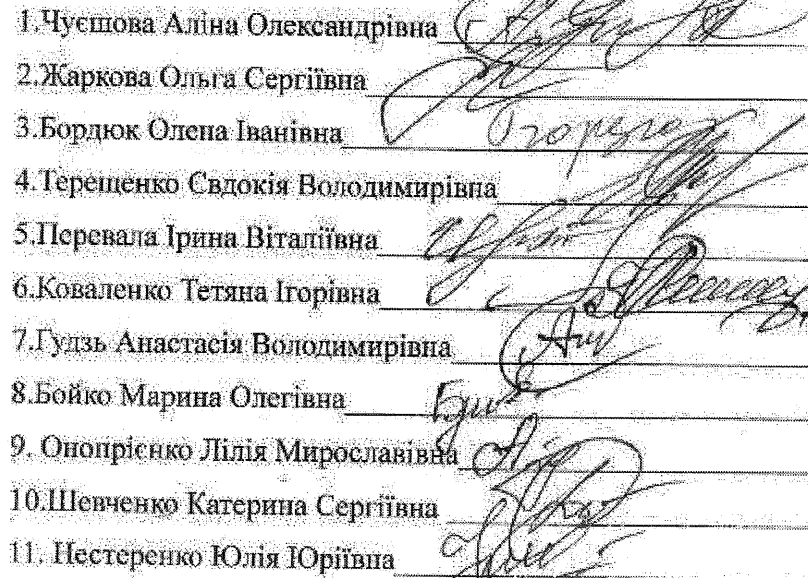 1.Чуєшова Аліна Олександрівна
2.Жаркова Ольга Сергіївна
3.Бордюк Олена Іванівна
4.Терещенко Євдокія Володимирівна
5.Перевала Ірина Віталіївна
6.Коваленко Тетяна Ігорівна
7.Гудзь Анастасія Володимирівна
8.Бойко Марина Олегівна
9. Онопрієнко Лілія Мирославівна
10.Шевченко Катерина Сергіївна
11. Нестеренко Юлія Юріївна